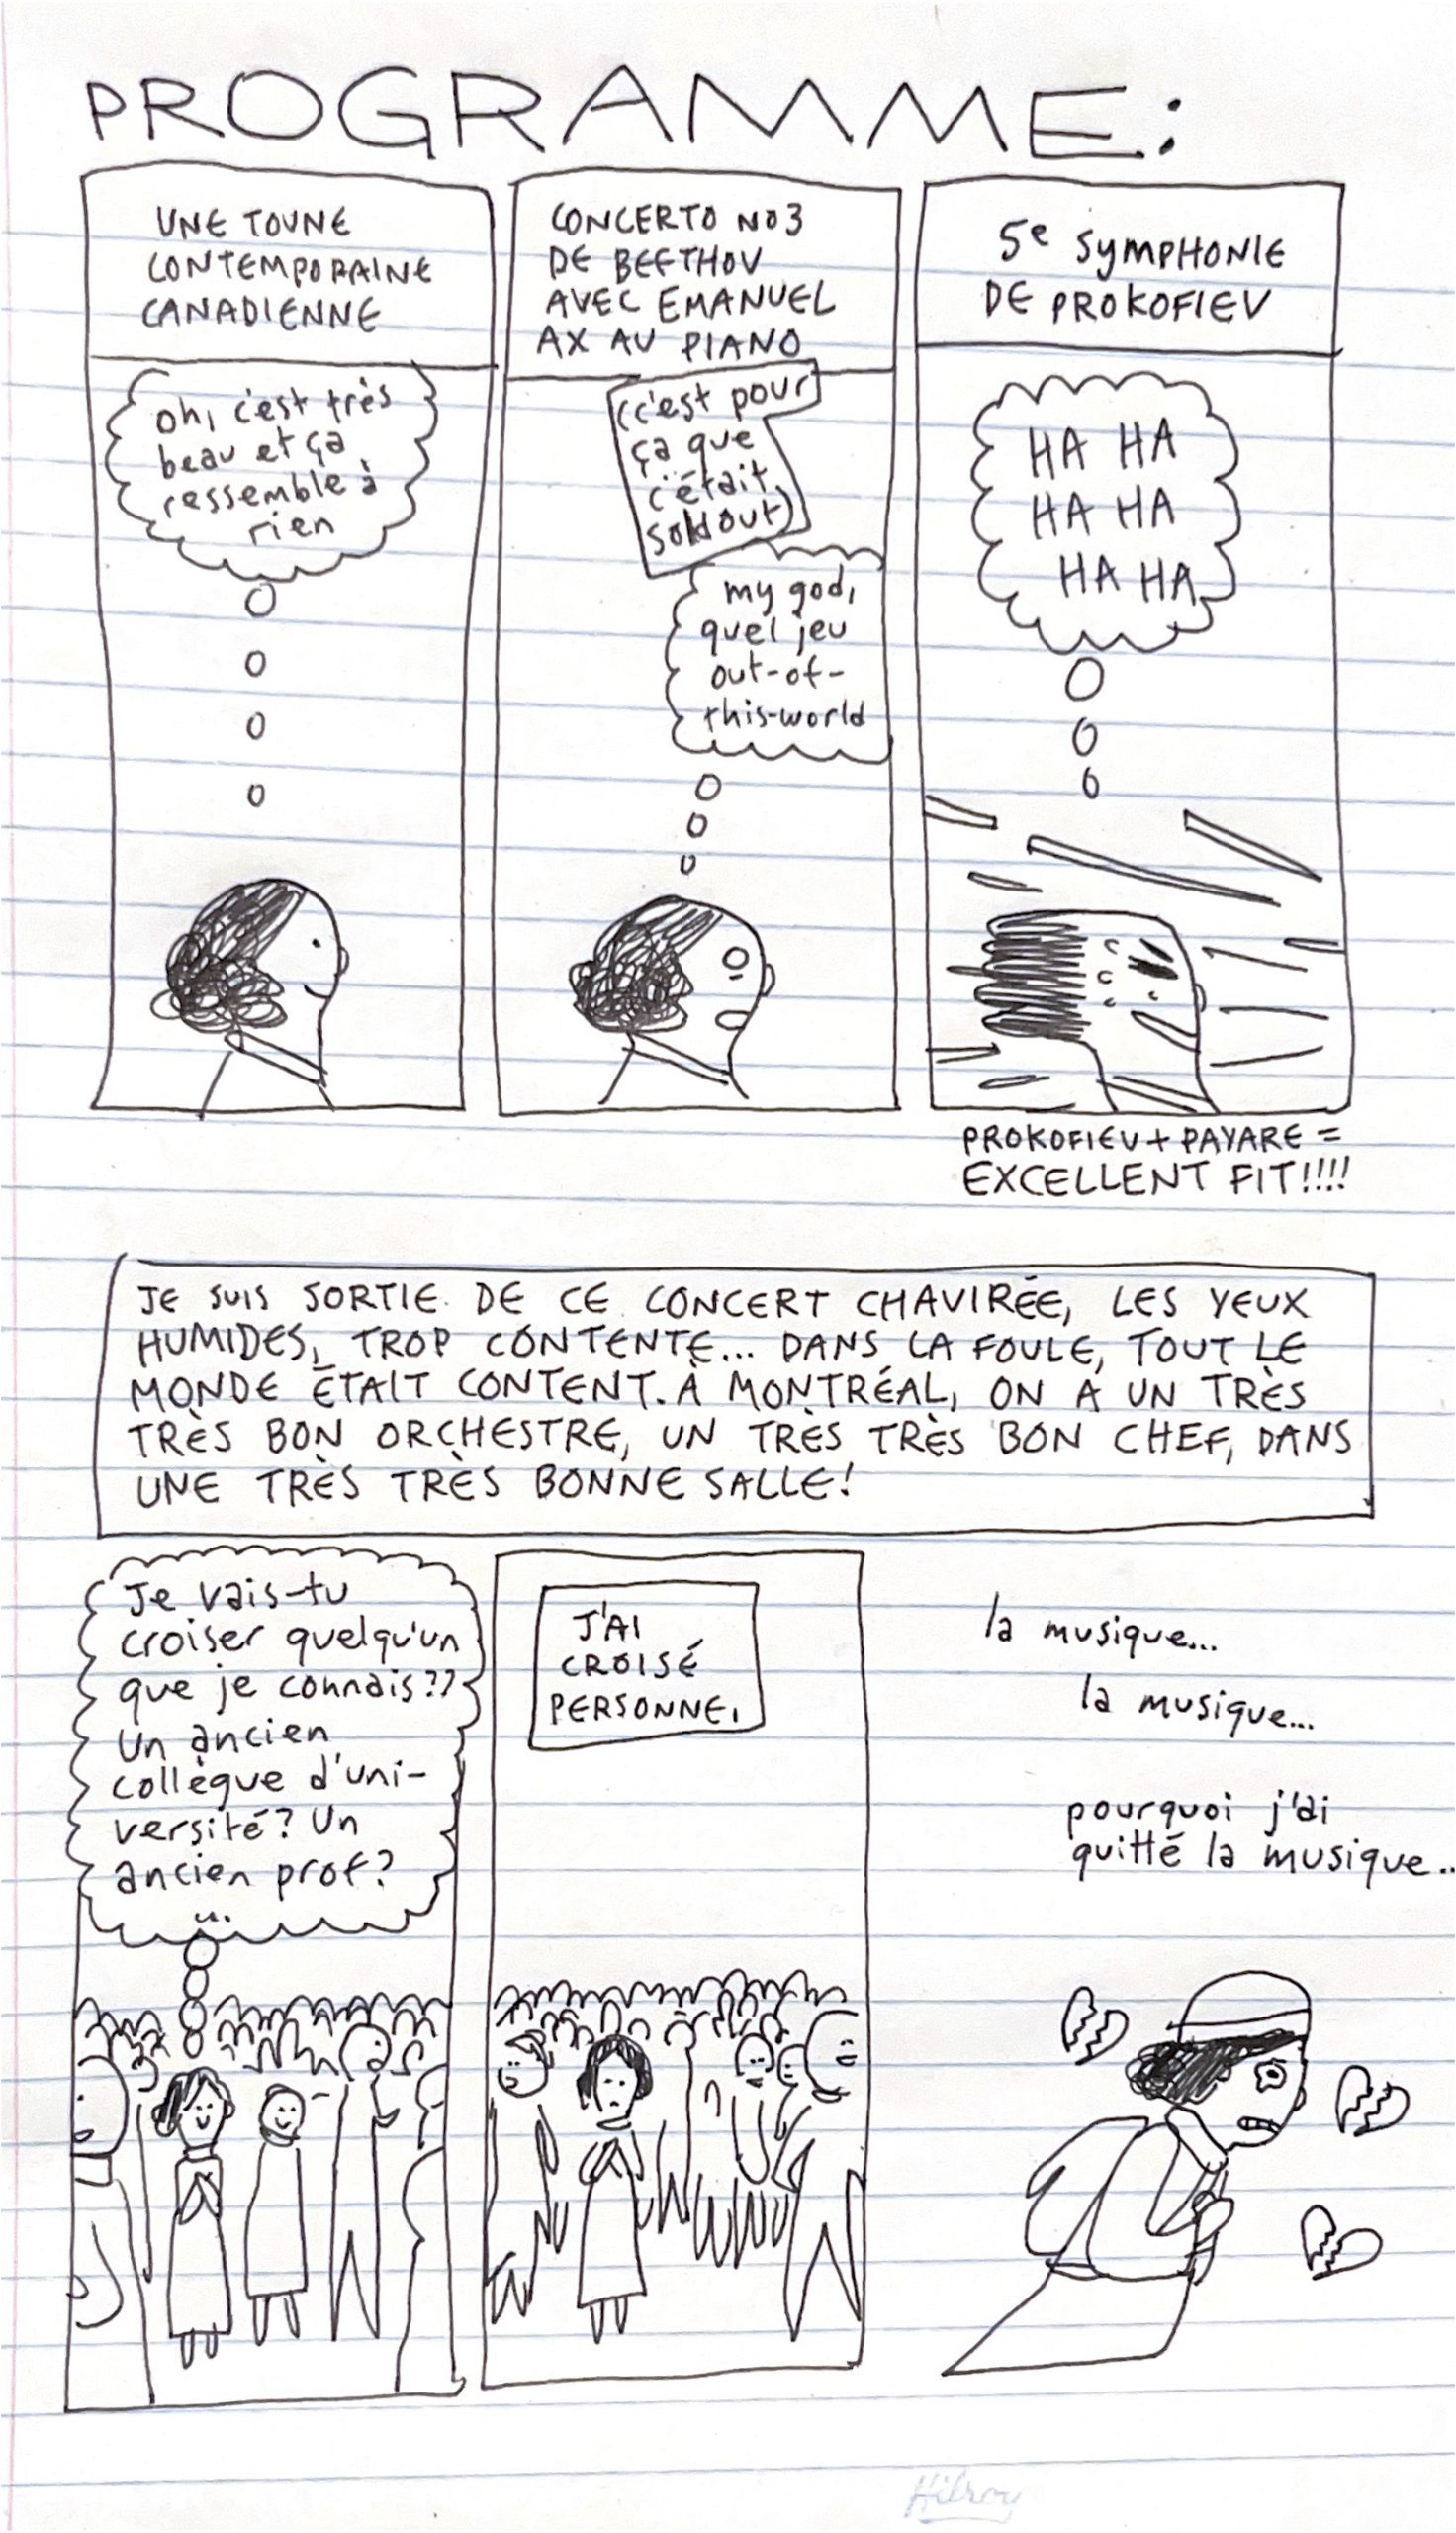 PROGRAMME:
UNE TOUNE
CONTEMPORAINE
CANADIENNE
oh, c'est très
beau et ça
ressemble à
rien
CONCERTO NO3
DE BEETHOV
AVEC EMANUEL
AX AU PIANO
(c'est pour
ça que
c'était
soldout)
my god,
quel jeu
out-of-
this-world
5e SYMPHONIE
DE PROKOFIEV
HA HA
HA HA
HA HA
PROKOFIEV + PAYARE =
EXCELLENT FIT!!!!
JE SUIS SORTIE DE CE CONCERT CHAVIRÉE, LES YEUX
HUMIDES, TROP CONTENTE... DANS LA FOULE, TOUT LE
MONDE ÉTAIT CONTENT. À MONTRÉAL, ON A UN TRÈS
TRÈS BON ORCHESTRE, UN TRÈS TRÈS BON CHEF, DANS
UNE TRÈS TRÈS BONNE SALLE!
Je vais-tu
croiser quelqu'un
que je connais??
Un ancien
collègue d'uni-
versité? Un
ancien prof?
...
J'AI
CROISÉ
PERSONNE.
la musique...
la musique...
pourquoi j'ai
quitté la musique...
Hilroy